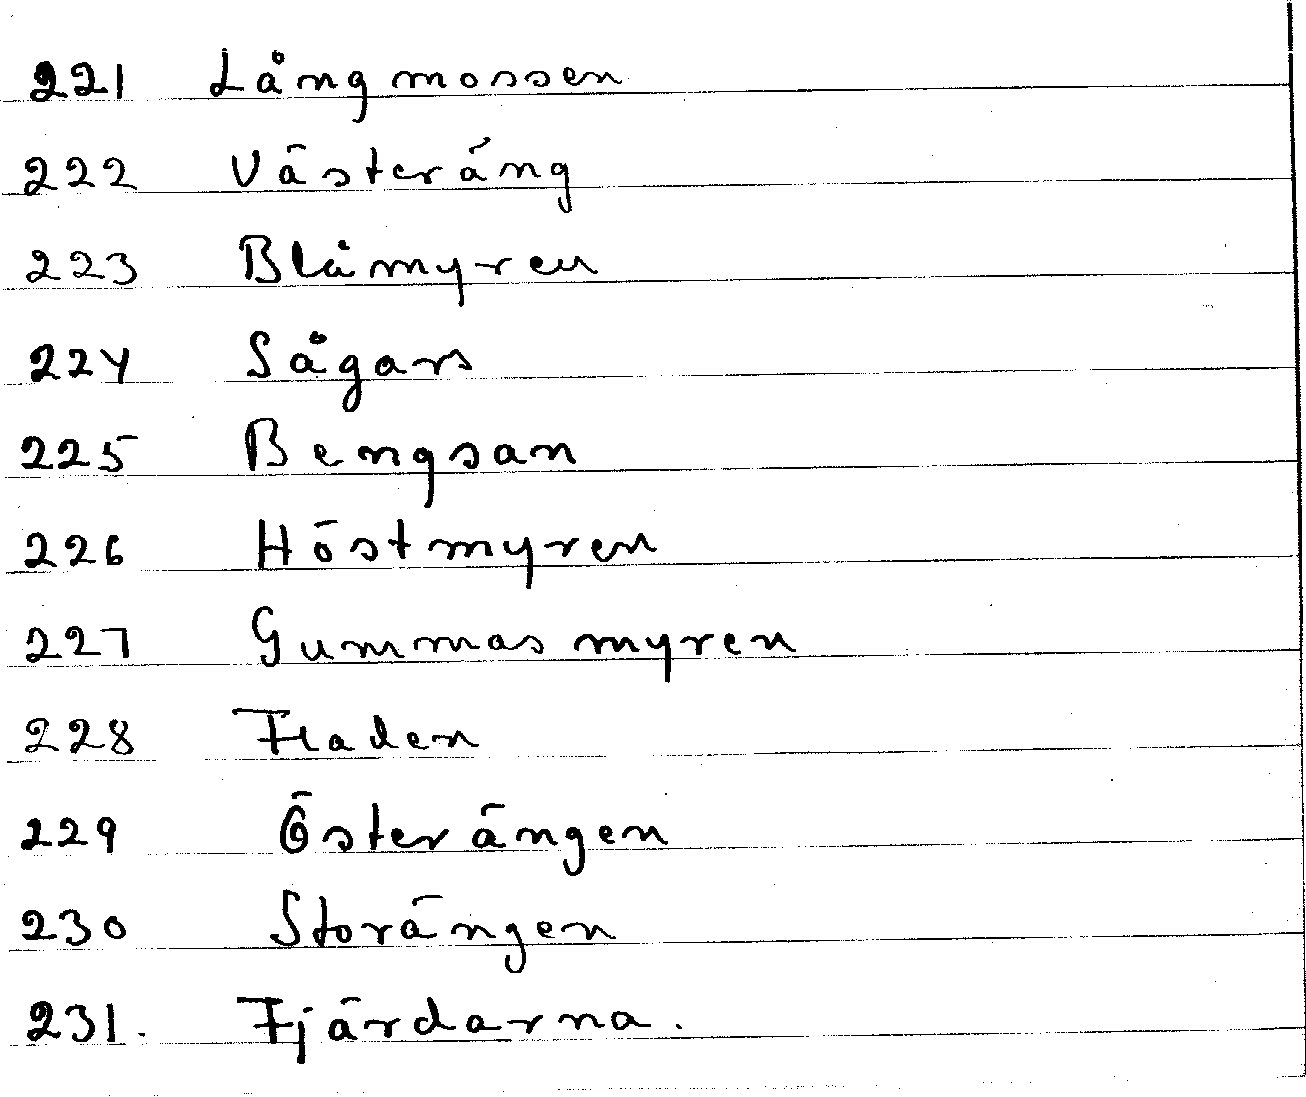 221 Långmossen
222 Västeräng
223 Blåmyren
224 Sågars
225 Bengsan
226 Höstmyren
227 Gummasmyren
228 Fladen
229 Österängen
230 Storängen
231. Fjärdarna.